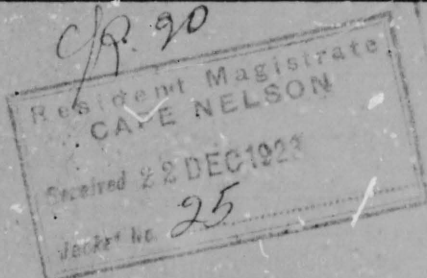 C/R. 90
Resident Magistrate
CAPE NELSON
Received 22 DEC 1923
Jacket No. 25